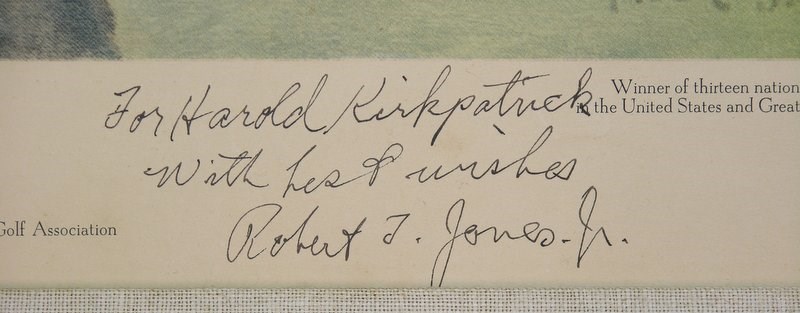 For Harold Kirkpatrick
Winner of thirteen nation
in the United States and Great
With best wishes
Golf Association
Robert T. Jones. Jr.